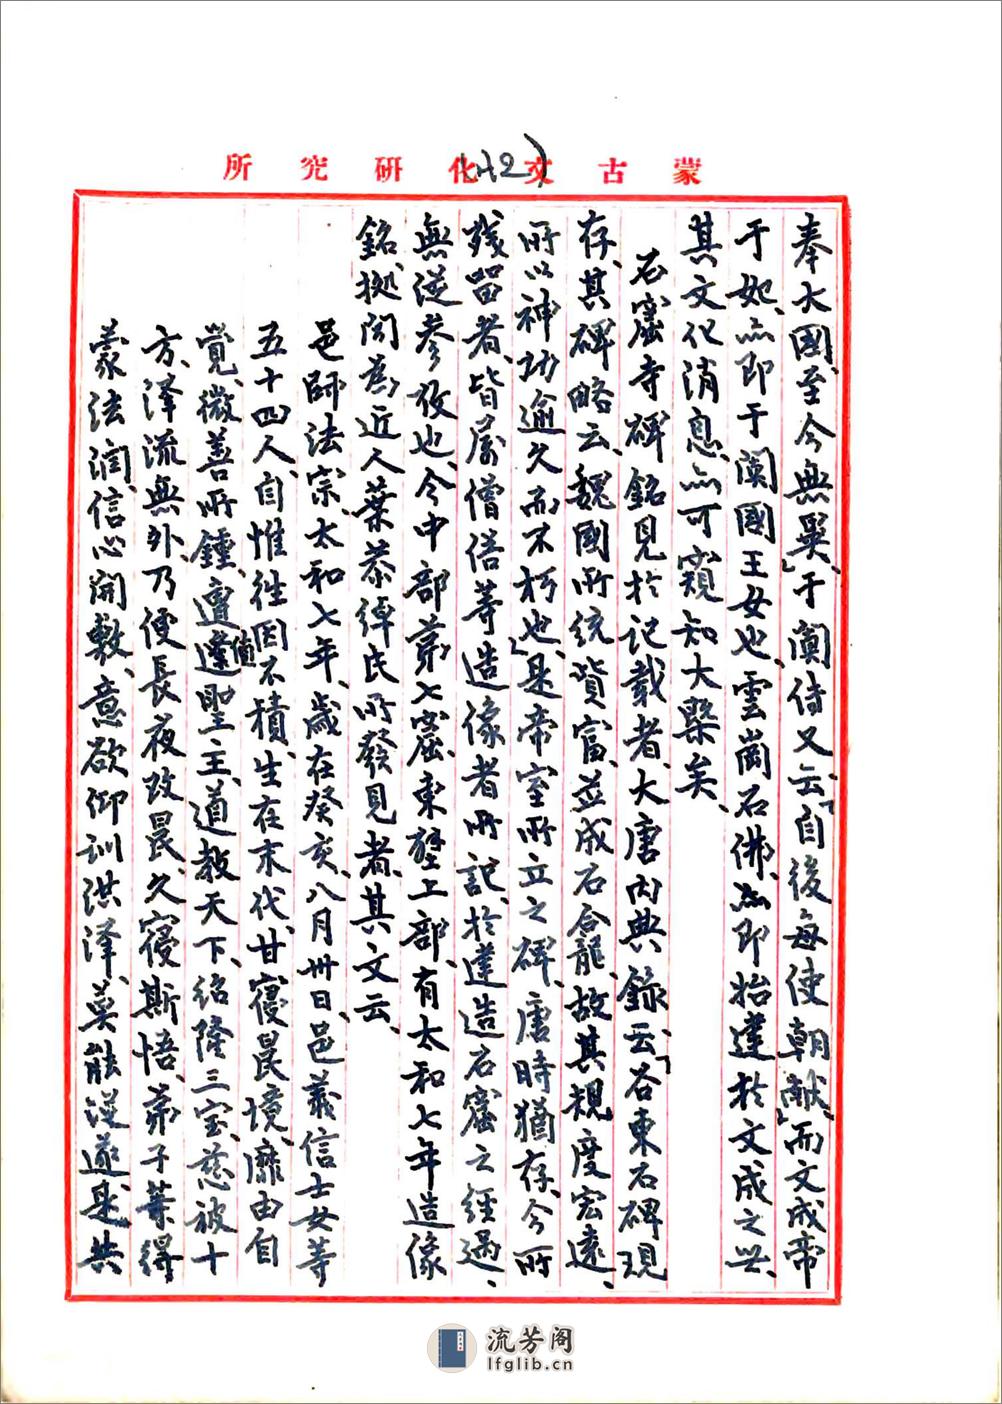 蒙古文化研究所
(42)
奉大國、至今無異、」于闐傳又云、「自後每使朝献」而文成帝
于妃、亦即于闐國王女也、雲崗石佛、亦即始建於文成之世、
其文化消息、亦可窺知大槩矣、
石窟寺碑銘見於記載者、大唐內典錄云、「谷東石碑現
存、其碑略云、魏國所統貲富、並成石龕、故其規度宏遠、
所以神功逾久而不朽也、」是帝室所立之碑、唐時猶存、今所
殘留者、皆屬僧俗等造像者所記、於建造石窟之經過、
無從參攷也、今中部第七窟、東壁上部、有太和七年造像
銘、拠聞為近人葉恭綽氏所發見者、其文云、
邑師法宗、太和七年、歲在癸亥、八月卅日、邑義信士女等
五十四人、自惟往因不積、生在末代、甘寢昏境、靡由自
覺、微善所鍾、遭逢聖主、道教天下、紹隆三宝、慈被十
方、澤流無外、乃使長夜改昏、久寢斯悟、弟子等得
蒙法潤、信心開敷、意欲仰訓洪澤、莫能從遂、是共
流芳阁
lfglib.cn